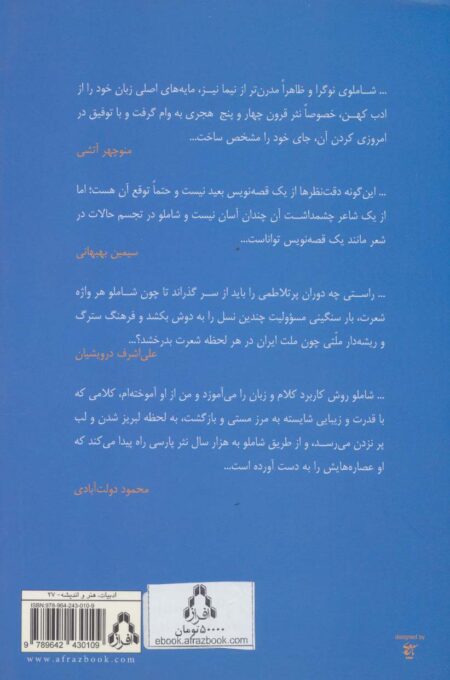 ... شاملوی نوگرا و ظاهراً مدرن‌تر از نیما نیز، مایه‌های اصلی زبان خود را از
ادب کهن، خصوصاً نثر قرون چهار و پنج هجری به وام گرفت و با توفیق در
امروزی کردن آن، جای خود را مشخص ساخت...
منوچهر آتشی
... این‌گونه دقت‌نظرها از یک قصه‌نویس بعید نیست و حتماً توقع آن هست؛ اما
از یک شاعر چشمداشت آن چندان آسان نیست و شاملو در تجسم حالات در
شعر مانند یک قصه‌نویس تواناست...
سیمین بهبهانی
... راستی چه دوران پرتلاطمی را باید از سر گذراند تا چون شاملو هر واژه
شعرت، بار سنگینی مسؤولیت چندین نسل را به دوش بکشد و فرهنگ سترگ
و ریشه‌دار ملّتی چون ملت ایران در هر لحظه شعرت بدرخشد؟...
علی‌اشرف درویشیان
... شاملو روش کاربرد کلام و زبان را می‌آموزد و من از او آموخته‌ام، کلامی که
با قدرت و زیبایی شایسته به مرز مستی و بازگشت، به لحظه لبریز شدن و لب
پر نزدن می‌رسد، و از طریق شاملو به هزار سال نثر پارسی راه پیدا می‌کند که
او عصاره‌هایش را به دست آورده است...
محمود دولت‌آبادی
ادبیات، هنر و اندیشه - ۲۷
ISBN: 978-964-243-010-9
9 789642 430109
www.afrazbook.com
افراز
۵۰۰۰۰ تومان
ebook.afrazbook.com
designed by